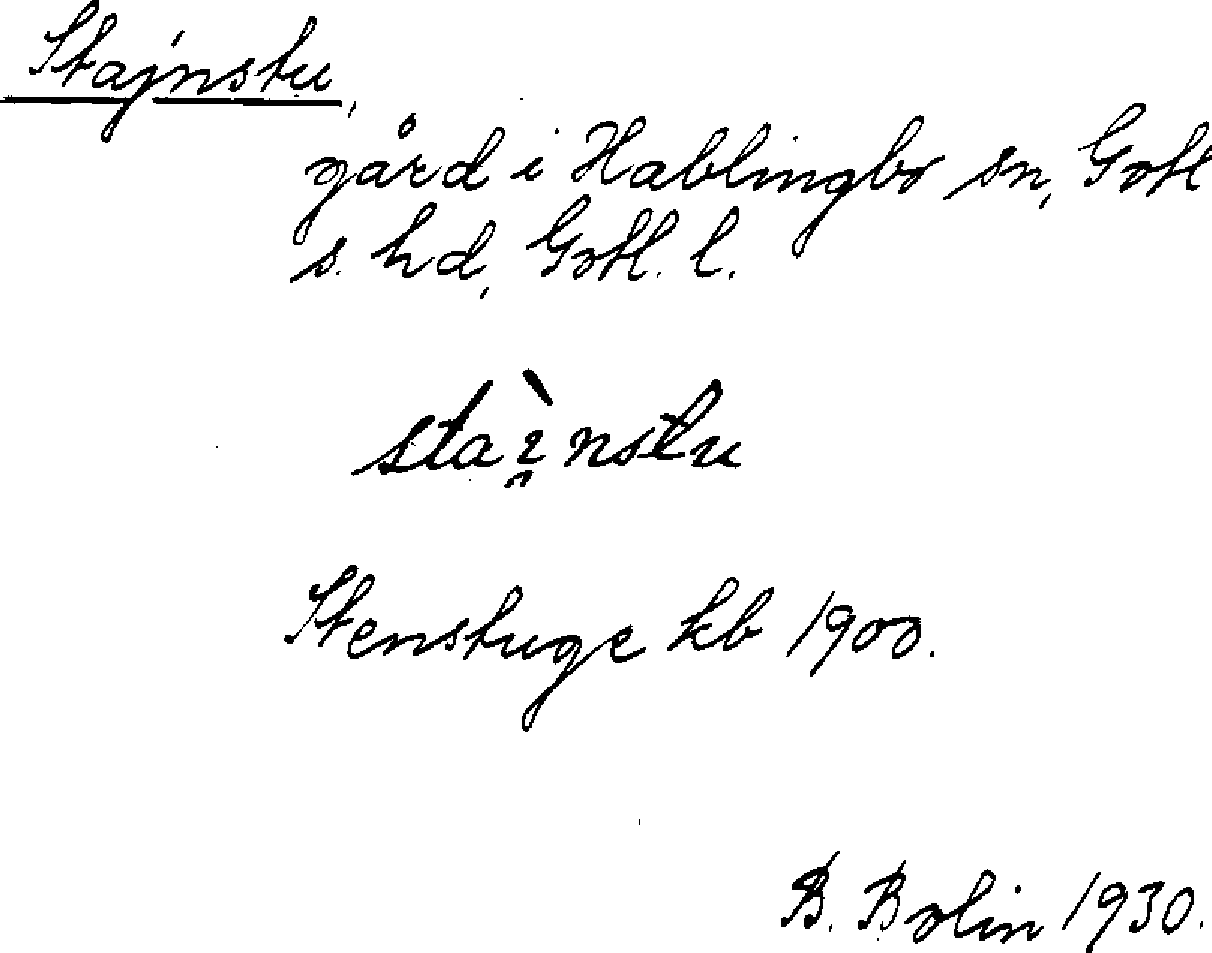 Stajnstu,
gård i Hablingbo sn, Gotl
s. hd, Gotl. l.
staì̯nstu
Stenstuge kb 1900.
B. Bolin 1930.